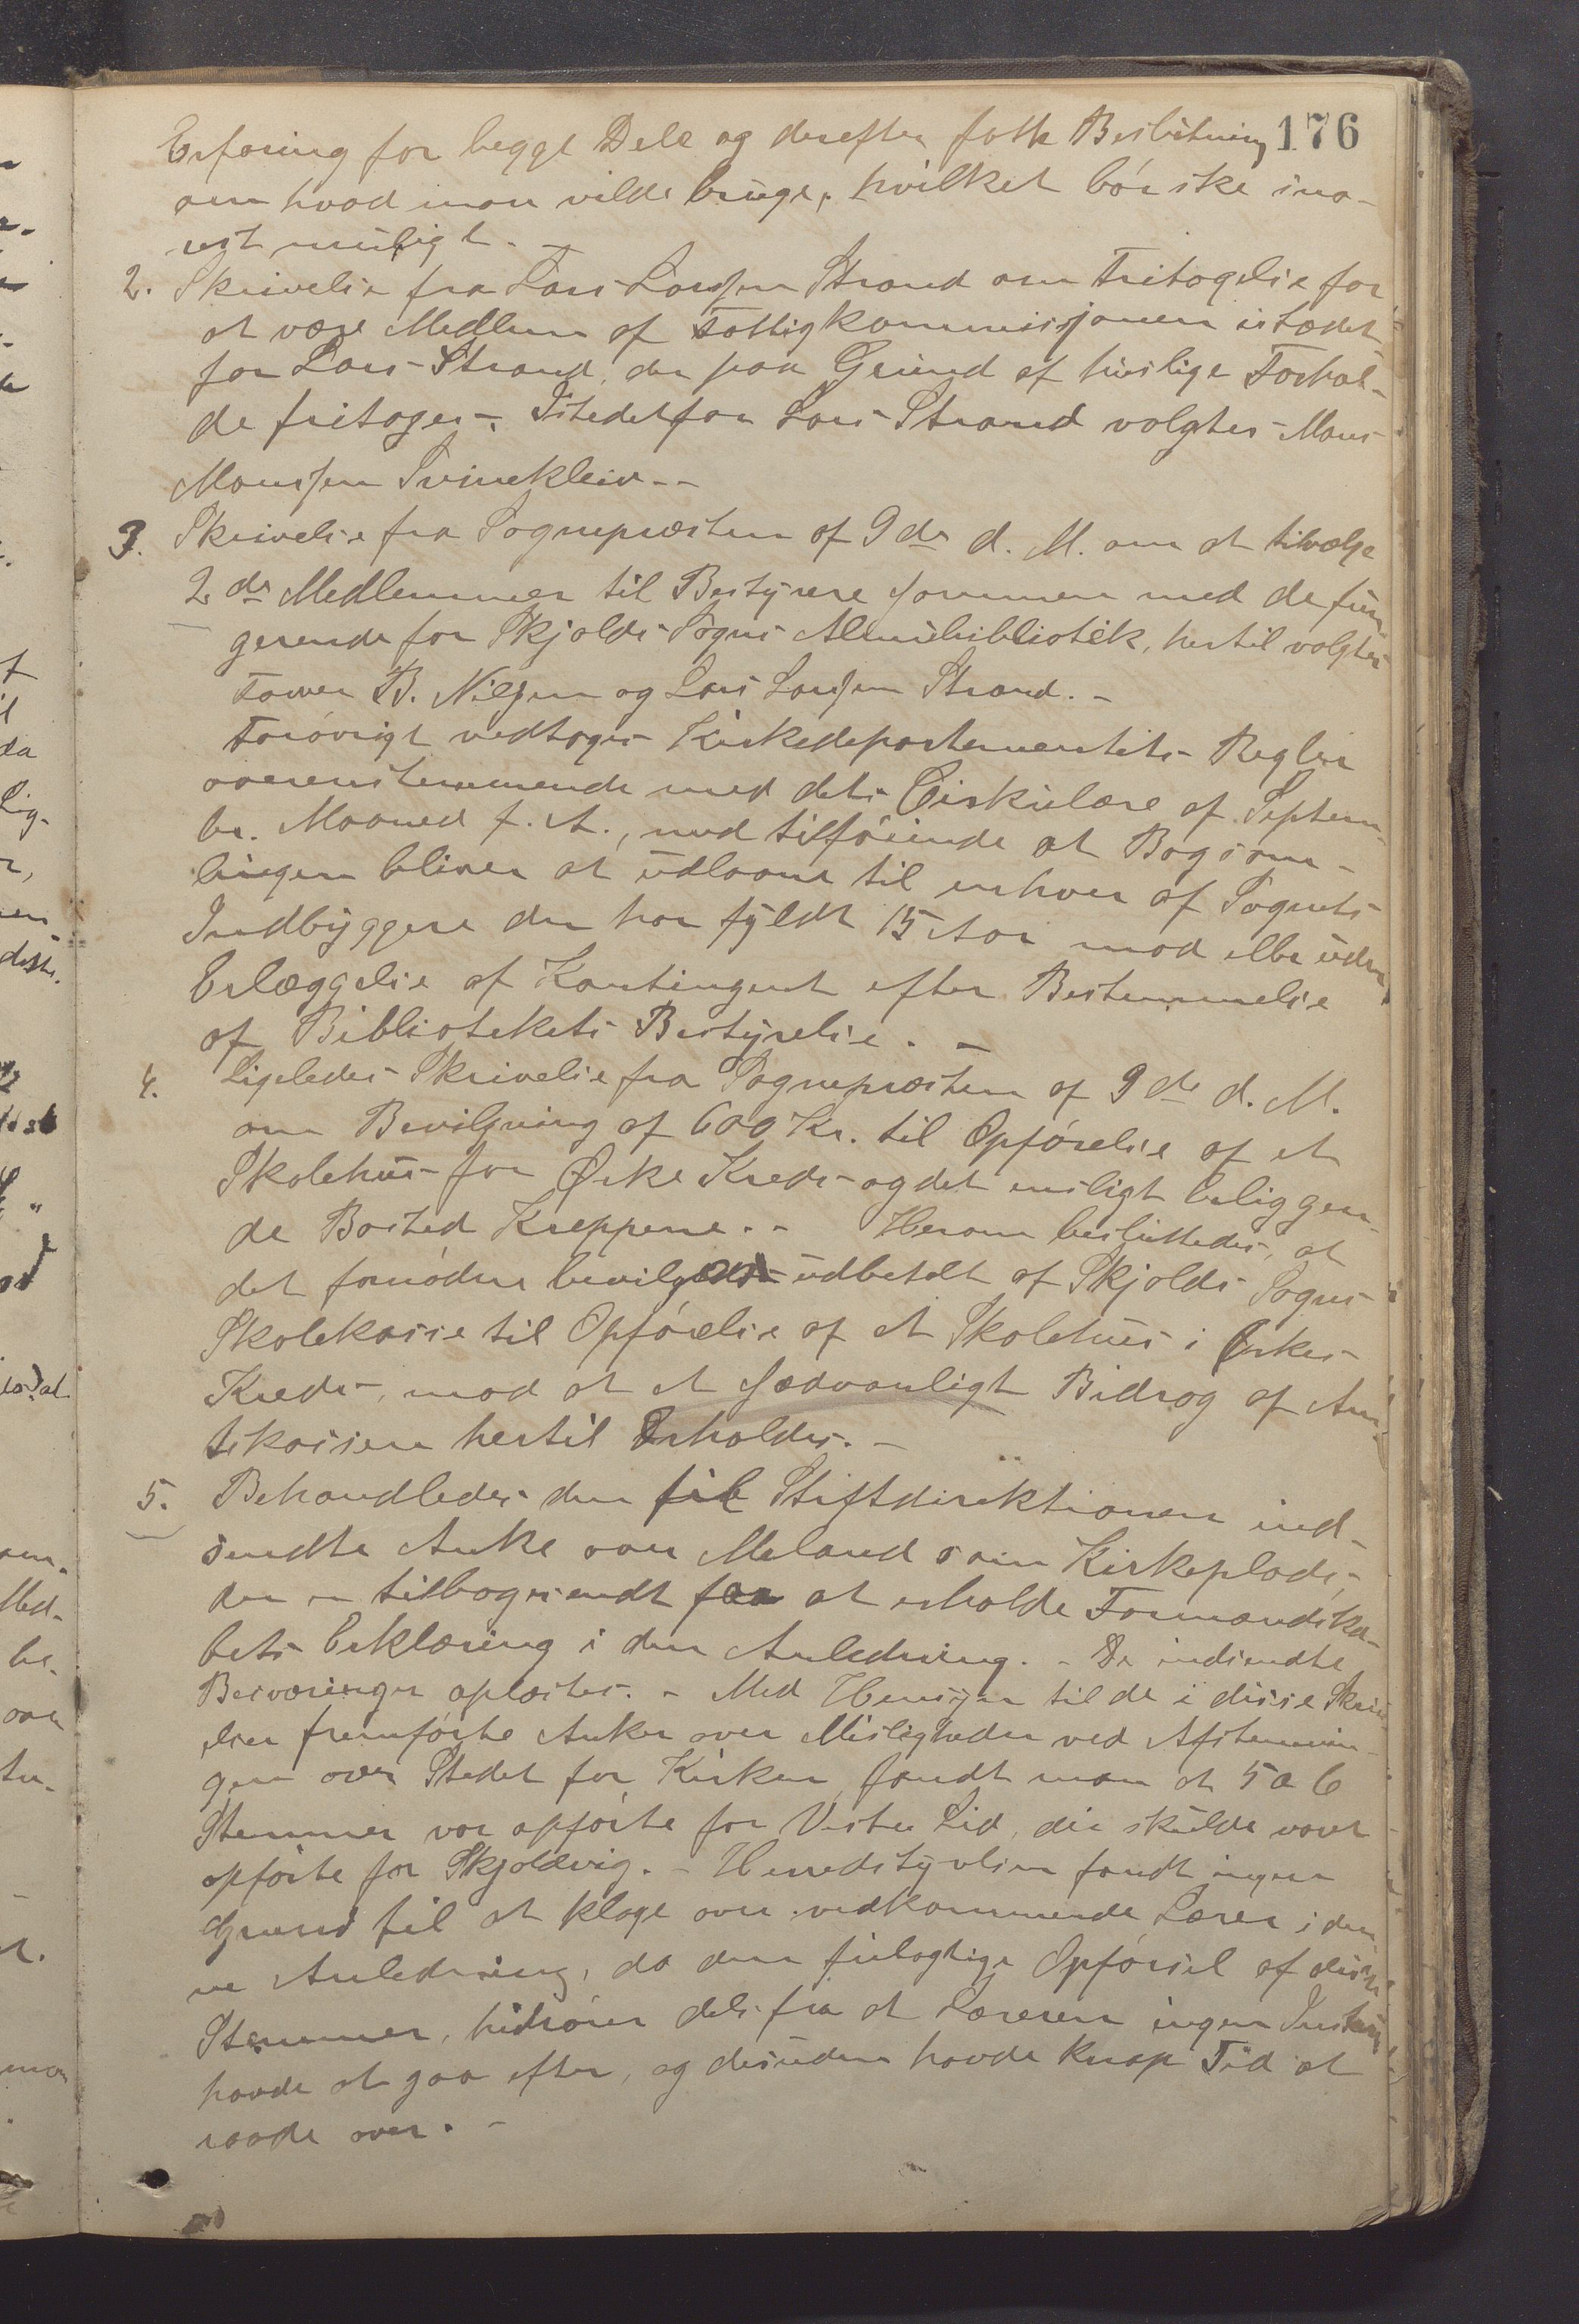 176
Erfaring for begge Dele og derefter fatte Beslutning
om hvad man vilde bruge, hvilket bør ske sna-
rest muligt. -
2. Skrivelse fra Lars Larssen Strand om Fritagelse for
at være Medlem af Fattigkommissjonen istædet
for Lars Strand, der paa Grund af huslige Forhol-
de fritages. Istedetfor Lars Strand valgtes Mons
Monssen Svinekleiv. -
3. Skrivelse fra Sognepræsten af 9de d. M. om at tilvælge
2de Medlemmer til Bestyrere sammen med de fun-
gerende for Skjolds Sogns Almubibliotek, hertil valgtes
B. Nilsen og Lars Larssen Strand. -
Forøvrigt vedtoges Kirkedepartementets Regler
overenstemmende med dets Cirkulære af Septem-
br. Maaned f. A., med tilføiende at Bogsam-
lingen bliver at udlaane til enhver af Sognets
Indbyggere der har fyldt 15 Aar mod eller uden
Erlæggelse af Kontingent efter Bestemmelse
af Bibliotekets Bestyrelse. -
4. Ligeledes Skrivelse fra Sognepræsten af 9de d. M.
om Bevilgning af 600 Kr. til Opførelse af et
Skolehus for Ørke Kreds og det ensligt beliggen-
de Bosted Kreppene. - Herom besluttedes, at
det fornødne bevilges udbetalt af Skjolds Sogns
Skolekasse til Opførelse af et Skolehus i Ørkes
Kreds, mod at et sædvanligt Bidrag af Am-
tskassen hertil Erholdes. -
5. Behandledes den til Stiftdirektionen ind-
sendte Anke over Meland som Kirkeplads,
der er tilbagesendt for at erholde Formandska-
bets Erklæring i den Anledning. - De indsendte
Besværinger oplæstes. - Med Hensyn til de i disse Skriv-
elser fremførte Anker over Misligheder ved Afstemnin-
gen over Stedet for Kirken, fandt man at 5 a 6
Stemmer var opførte for Vestre Lid, der skulde været
opførte for Skjoldevig. - Herredstyrelsen fandt ingen
Grund til at klage over vedkommende Lærer i den-
ne Anledning, da den feilagtige Opførsel af disse
Stemmer, hidrører dels fra at Læreren ingen
havde at gaa efter, og desuden havde knap Tid at
raade over. -